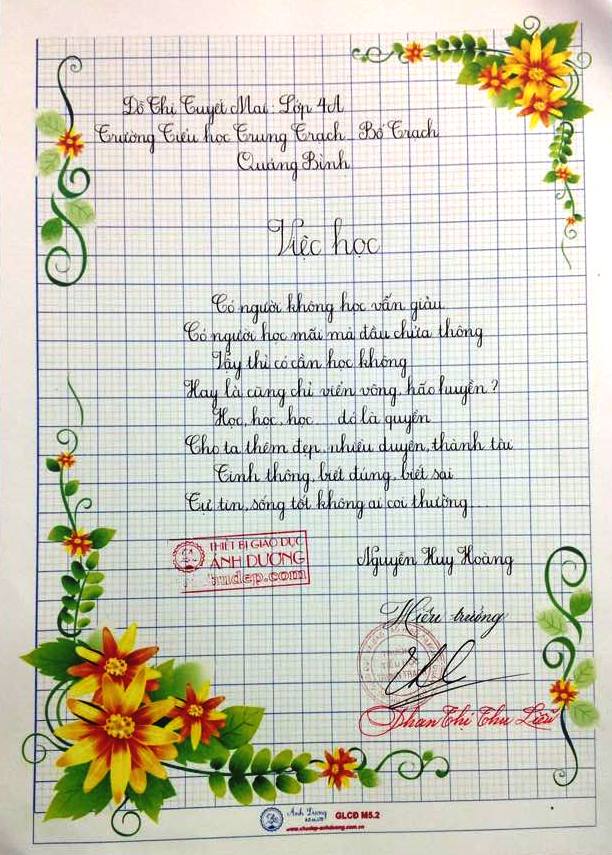 Đỗ Thị Tuyết Mai: Lớp 4A
Trường Tiểu học Trung Trạch - Bố Trạch
Quảng Bình
Việc học
Có người không học vẫn giàu
Có người học mãi mà đầu chửa thông
Vậy thì có cần học không
Hay là cũng chỉ viển vông, hão huyền?
Học, học, học... đó là quyền
Cho ta thêm đẹp, nhiều duyên, thành tài
Tinh thông, biết đúng, biết sai
Tự tin, sống tốt không ai coi thường...
THIẾT BỊ GIÁO DỤC
ÁNH DƯƠNG
Nguyễn Huy Hoàng
Hiệu trưởng
Phan Thị Thu Liễu
Ánh Dương
GLCĐ M5.2
www.chudep-anhduong.com.vn